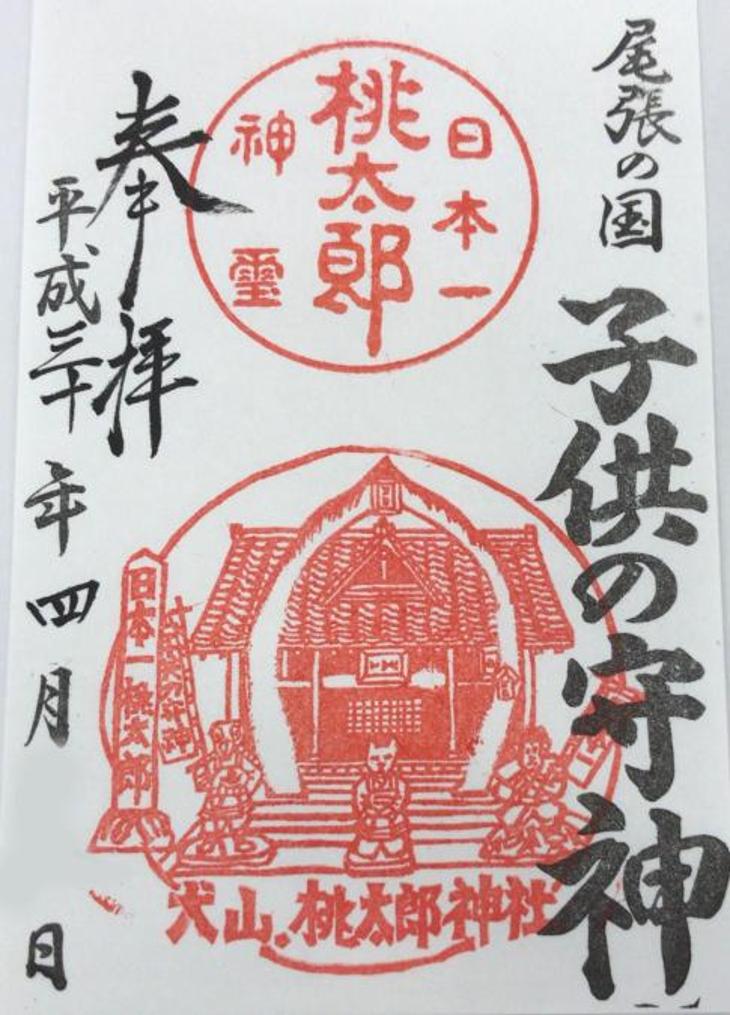 尾張の国
子供の守神
日本一
桃太郎
神璽
奉拝
平成三十年四月 日
日本一桃太郎
犬山.桃太郎神社